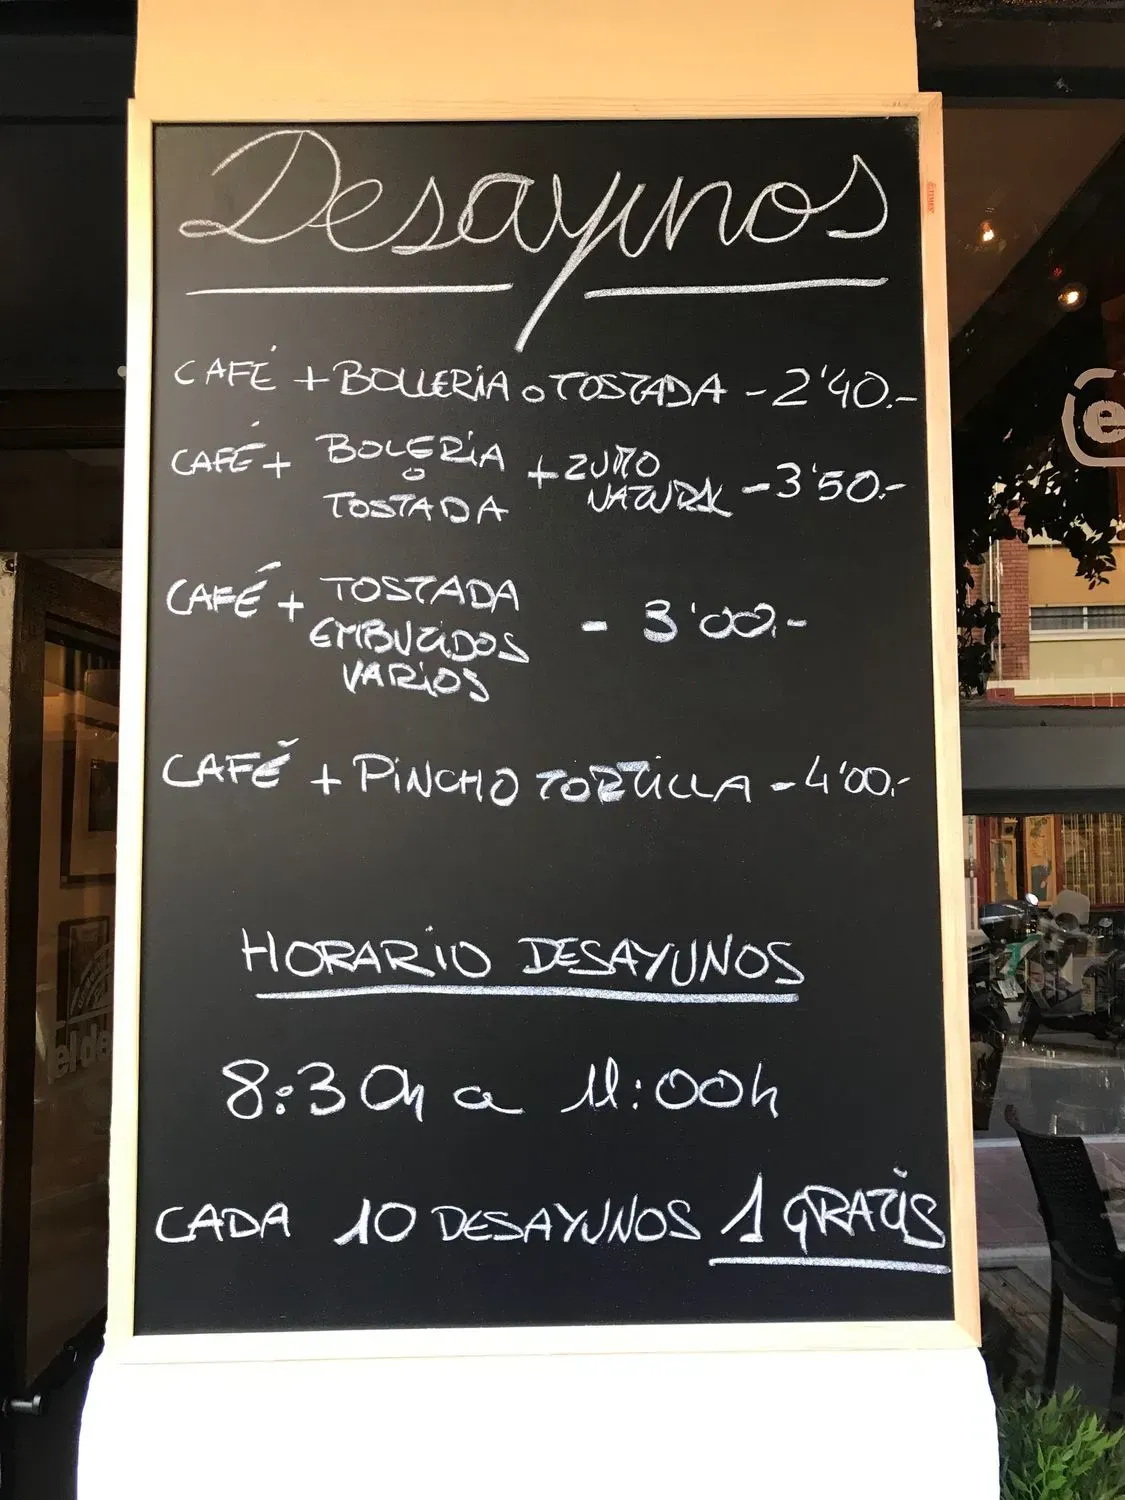 Desayunos
CAFÉ + BOLLERIA o TOSTADA - 2'40.-
CAFÉ + BOLERIA O TOSTADA + ZUMO NATURAL - 3'50.-
CAFÉ + TOSTADA EMBUTIDOS VARIOS - 3'00.-
CAFÉ + PINCHO TORTILLA - 4'00.-
HORARIO DESAYUNOS
8:30h a 11:00h
CADA 10 DESAYUNOS 1 GRATIS
e
elde